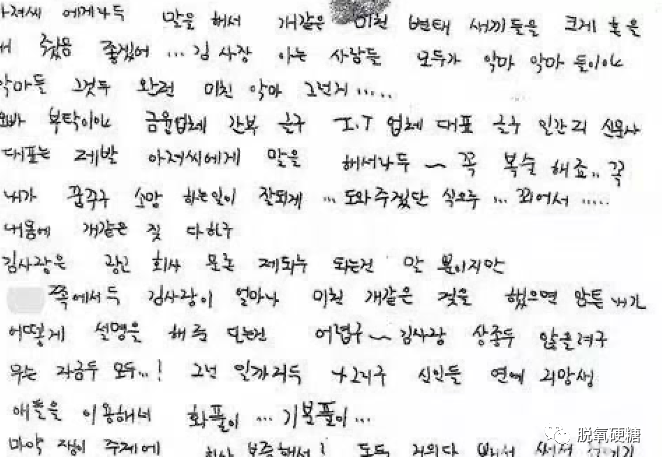 아저씨 에게나득 말을 해서 개같은 미친 변태 새끼들을 크게 혼을
내 줬음 좋겠어 ... 김사장 아는 사람들 모두가 악마 악마 들이야
악마들 그것두 완전 미친 악마 그런거 .....
오빠 부탁이야 금융업체 간부 글구 I.T 업체 대표 글구 인간리 신문사
대표는 제발 아저씨에게 말을 해서나두 ~ 꼭 복수 해죠.. 꼭
내가 꿈꾸구 소망 하는일이 잘되게 ... 도와주겠단 식으루 ... 꾀어서 .....
내몸에 개같은 짓 다하구
김사장은 광고 회사 모든 제의는 되는건 말 뿐이지만
쪽에서득 김사장이 얼마나 미친 개같은 짓을 했으면 암튼 내가
어떻게 설명을 해 준 다는건 어렵구 ~ 김사장 상종두 않을려구
우는 자금두 모두...! 그런 일까리득 그리구 신인들 연예 지망생
애들을 이용해네 화풀이 ... 기분풀이 ...
마약 쟁이 주제에
脱氧硬糖